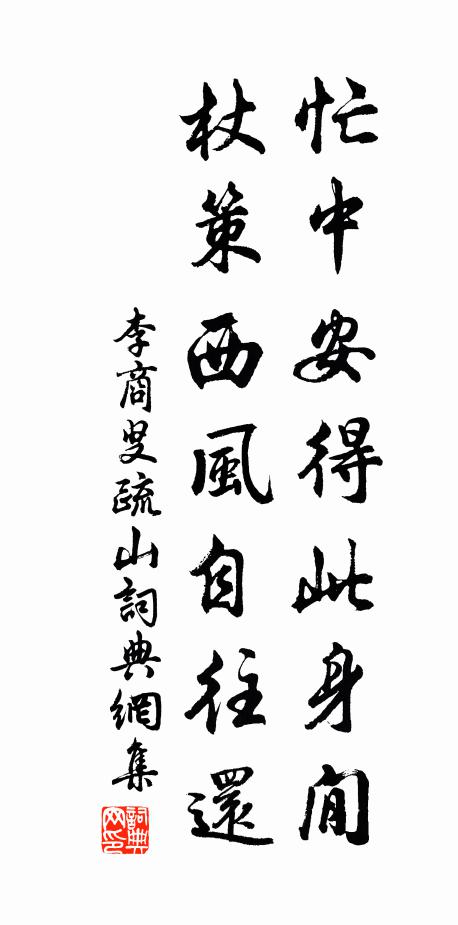 忙中安得此身閒
杖策西風自往還
李商叟疏山詞典網集
詞典
网印